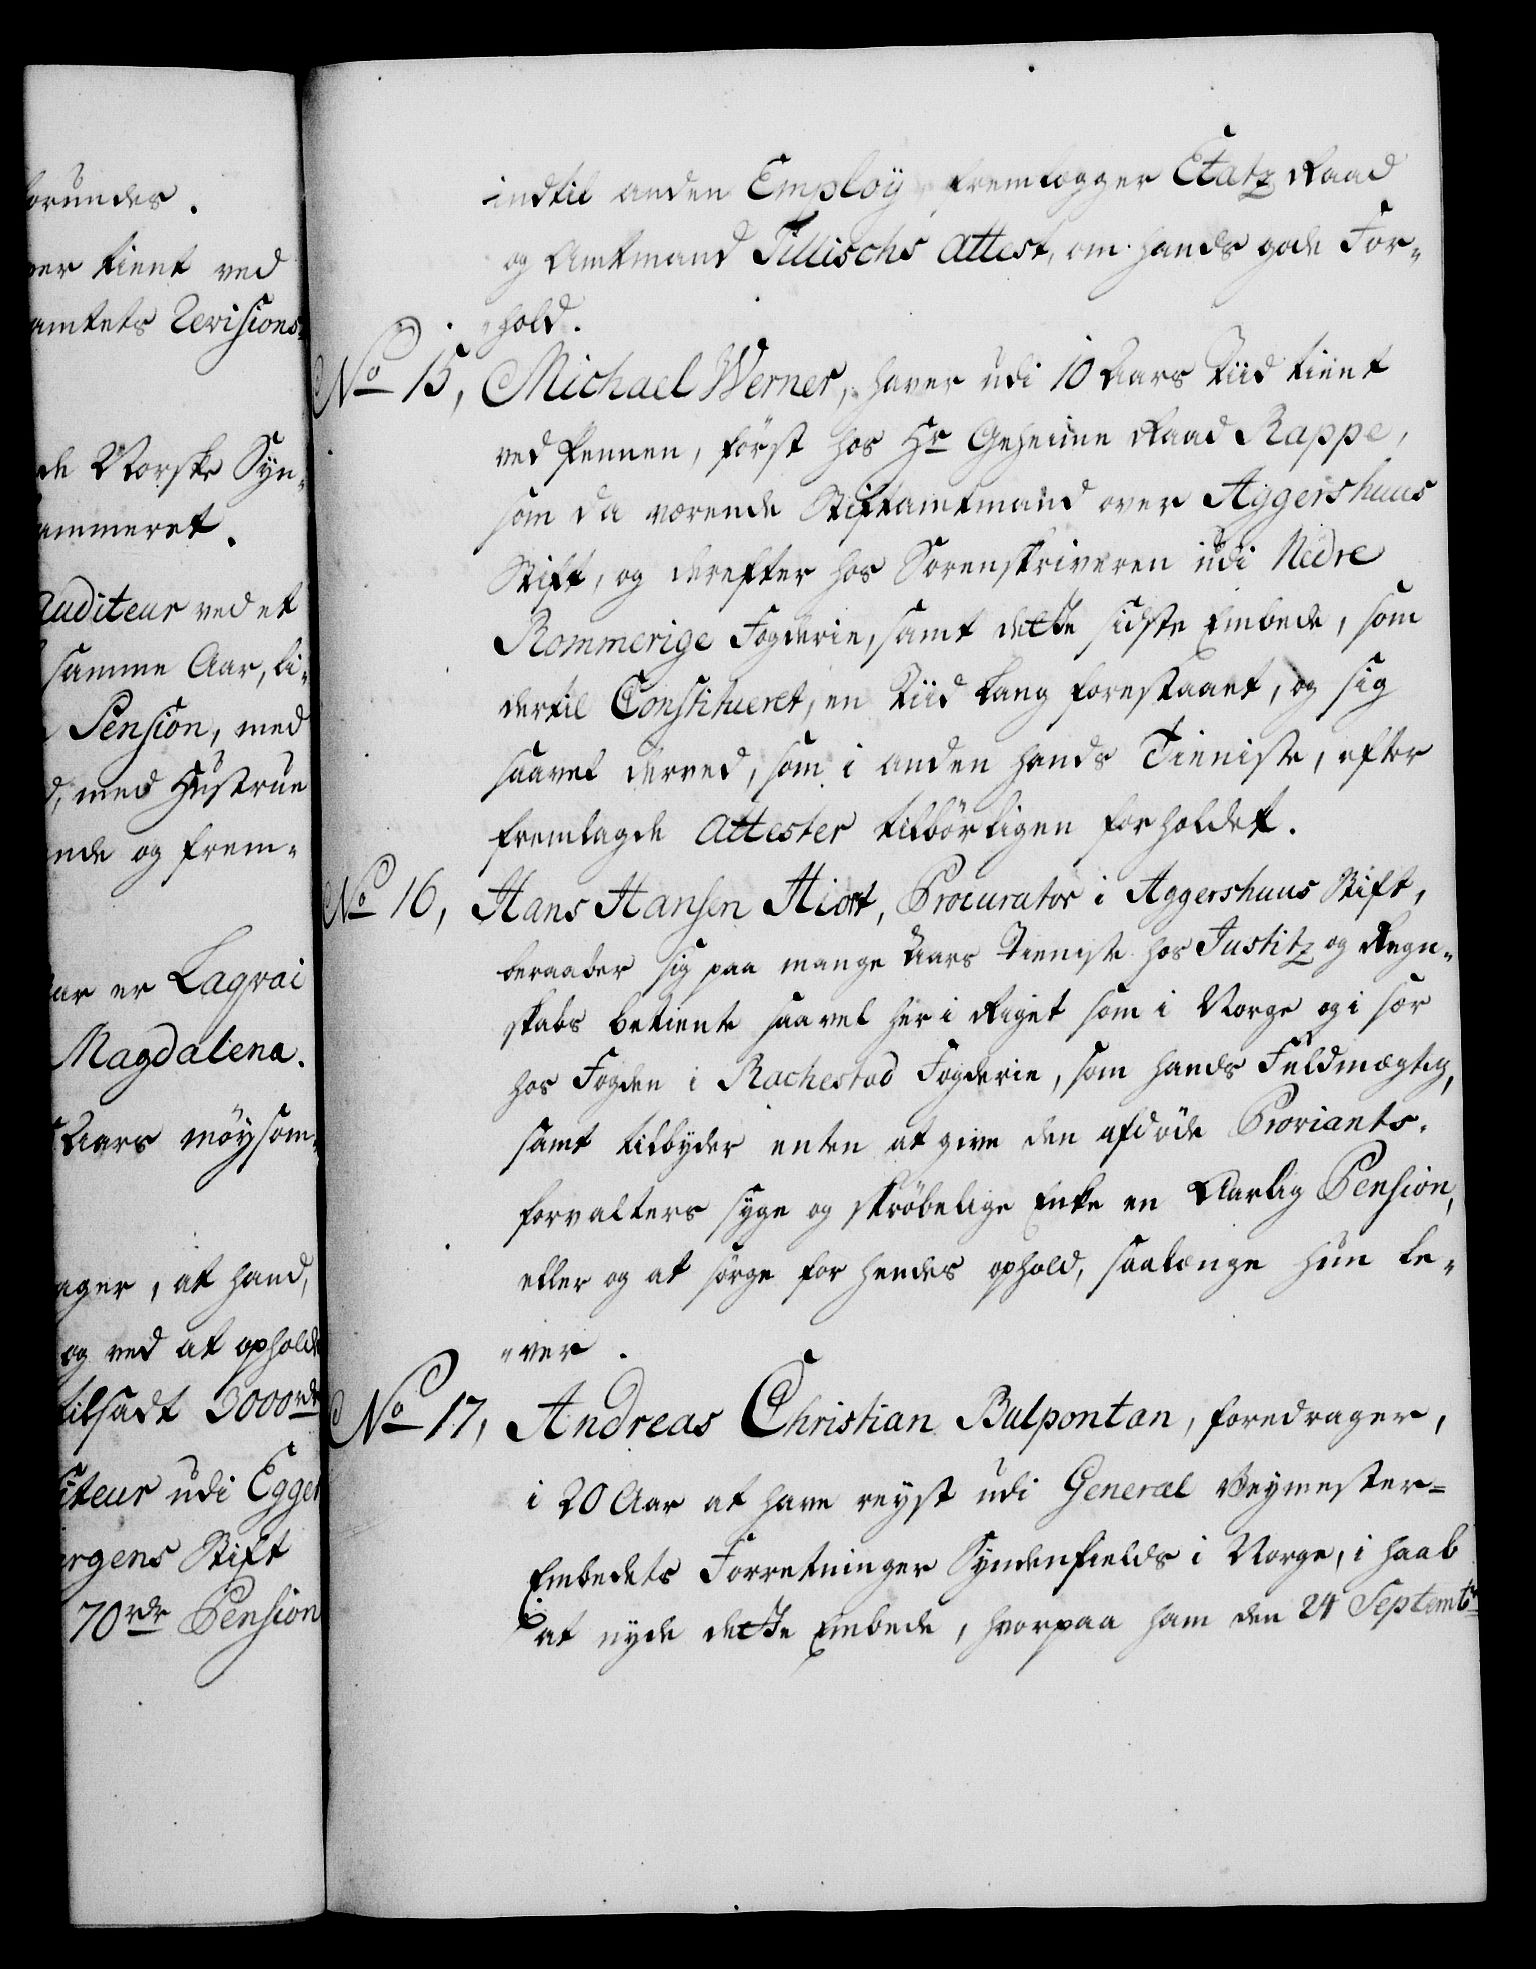 orundes.
ver tient ved
amtets Revisions-
de Norske Syn-
ammeret.
Auditeur ved et
samme Aar, li-
Pension, med
d, med Hustrue
ende og frem-
ar er Laqvai
Magdalena.
Aars möysom-
ager, at hand,
og ved at opholde
tilsadt 3000 rdr
iteur udi Egger
ergens Stift
70 rdr Pension
indtil anden Employ, fremlægger Etatz Raad
og Amtmand Tillischs Attest, om hands gode For-
hold.
No 15, Michael Werner, haver udi 10 Aars Tiid tient
ved Pennen, först hos Hr Geheime Raad Rappe,
som da værende Stiftamtmand over Aggershuus
Stift, og derefter hos Sorenskriveren udi Nedre
Rommerige Fogderie, samt dette sidste Embede, som
dertil Constitueret, en Tiid lang forestaaet, og sig
saavel derved, som i anden hands Tieniste, efter
fremlagde Attester tilbörligen forholdet.
No 16, Hans Hansen Hiort, Procurator i Aggershuus Stift,
beraaber sig paa mange Aars Tieniste hos Justitz og Regn-
skabs betiente saavel her i Riget som i Norge og i sær
hos Fogden i Rachestad Fogderie, som hands Fuldmægtig,
samt tilbyder enten at give den afdöde Proviants-
forvalters syge og skröbelige Enke en Aarlig Pension,
eller og at sörge for hendes ophold, saalænge hun le-
ver.
No 17, Andreas Christian Bulpontan, foredrager,
i 20 Aar at have reyst udi General Veymester-
Embedets Forretninger Syndenfields i Norge, i haab
at nyde dette Embede, hvorpaa ham den 24 Septembr